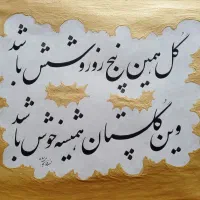 گل همین پنج روز و شش باشد
وین گلستان همیشه خوش باشد